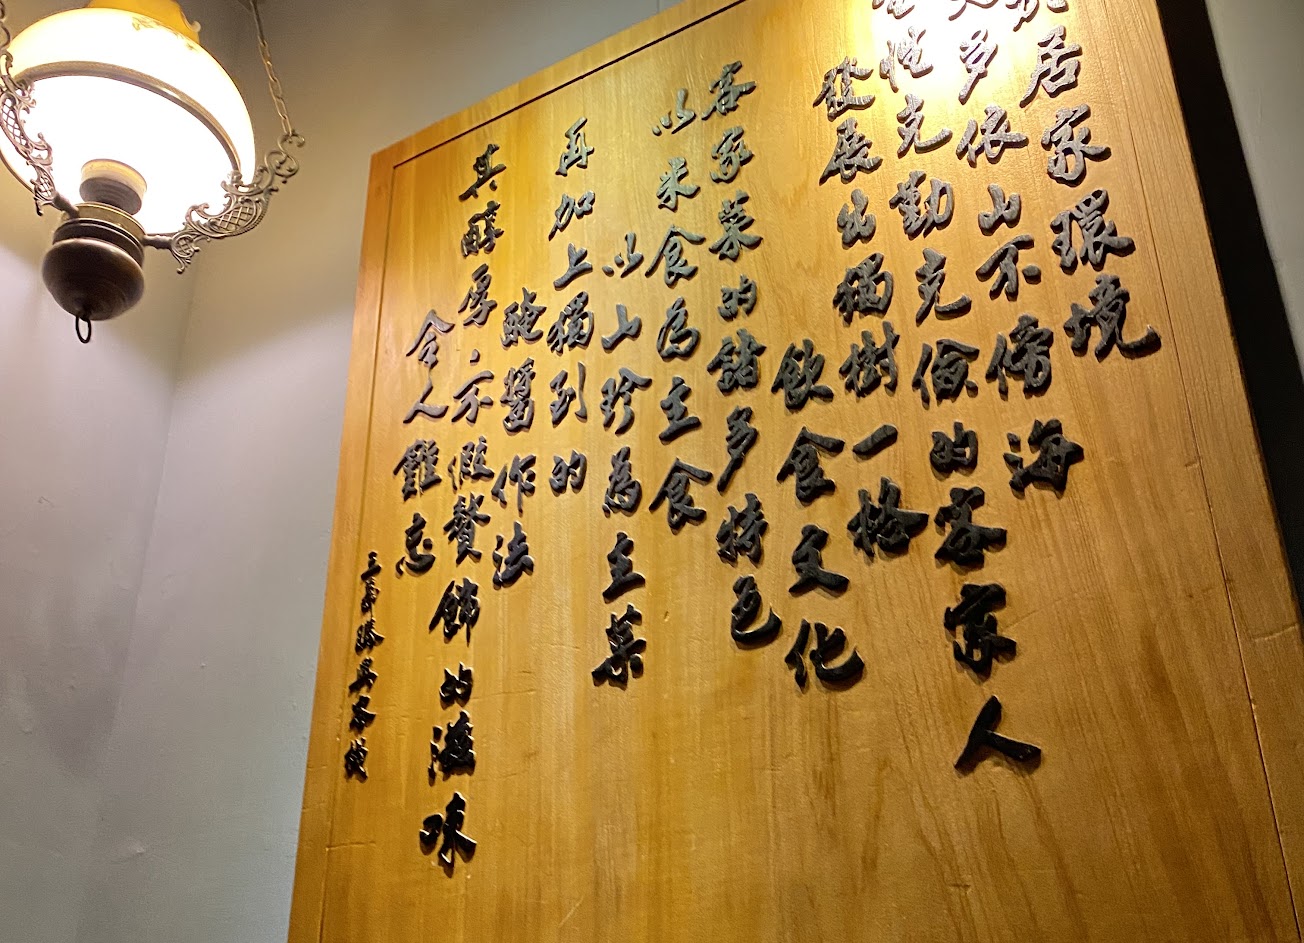 居家環境
多依山不傍海
性克勤克儉的客家人
發展出獨樹一格
飲食文化
客家菜的諸多特色
以米食為主食
以山珍為主菜
再加上獨到的
醃醬作法
其醇厚、不假贅飾的滋味
令人難忘
三義勝興客棧